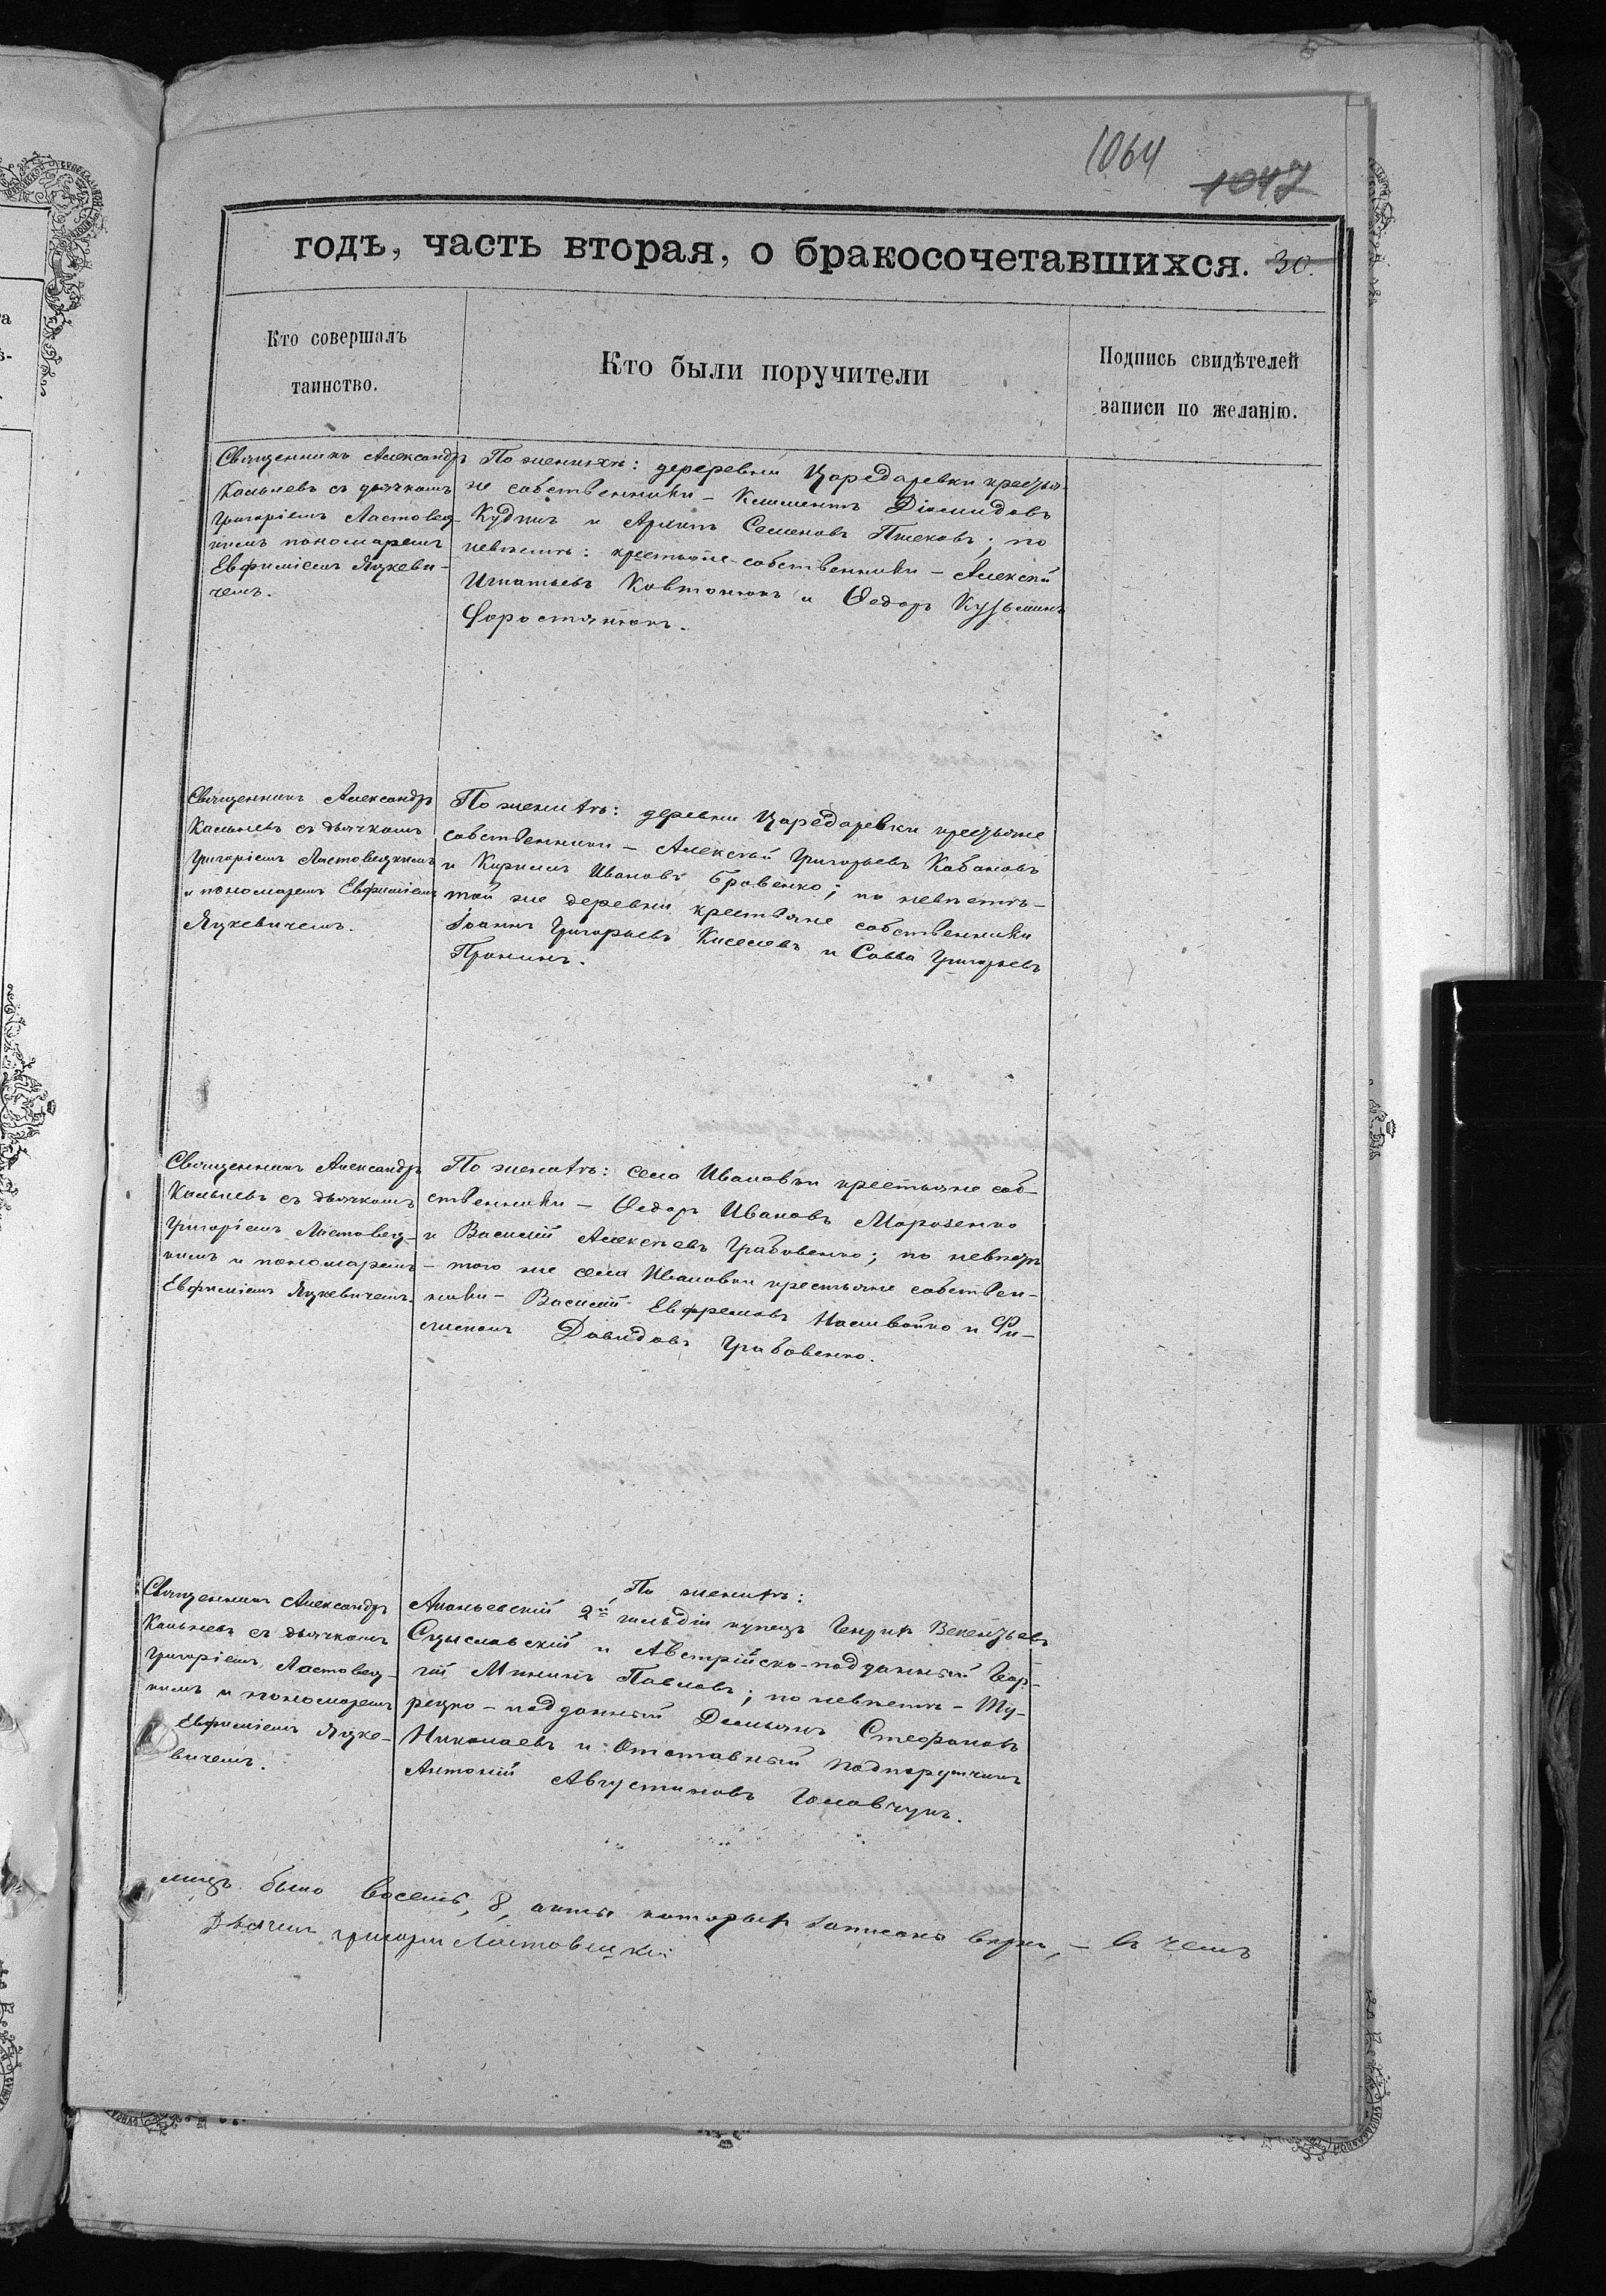 1064
1047
годъ, часть вторая, о бракосочетавшихся. 30.
Кто совершалъ
таинство.
Кто были поручители
Подпись свидѣтелей
записи по желанію.
Священникъ Александръ
Кольневъ съ дьячкомъ
Григоріемъ Ластовец-
кимъ пономаремъ
Евфиміемъ Яцкеви-
чемъ.
По женихѣ: дереревни Царедаревки крестья-
не собственники – Климентъ Діомидовъ
Кудинъ и Архипъ Семеновъ Пшековъ; по
невѣстѣ: крестьяне-собственники – Алексѣй
Игнатьевъ Ковтонюкъ и Ѳедоръ Кузьминъ
Форостянюкъ.
Священникъ Александръ
Кольневъ съ дьячкомъ
Григоріемъ Ластовецкимъ
и пономаремъ Евфиміемъ
Яцкевичемъ.
По женихѣ: деревни Царедаревки крестьяне
собственники – Алексѣй Григорьевъ Кабановъ
и Кирилъ Ивановъ Бровенко; по невѣстѣ –
той же деревни крестьяне собственники
Іоаннъ Григорьевъ Киселевъ и Савва Григорьевъ
Пронинъ.
Священникъ Александръ
Кольневъ съ дьячкомъ
Григоріемъ Ластовец-
кимъ и пономаремъ
Евфиміемъ Яцкевичемъ.
По женихѣ: села Ивановки крестьяне соб-
ственники – Ѳедоръ Ивановъ Морозенко
и Василій Алексѣевъ Грабовенко; по невѣстѣ
– того же села Ивановки крестьяне собствен-
ники – Василій Евфремовъ Наливайко и Фи-
лимонъ Давидовъ Грабовенко.
Священникъ Александръ
Кольневъ съ дьячкомъ
Григоріемъ Ластовец-
кимъ и пономаремъ
Евфиміемъ Яцке-
вичемъ.
По женихѣ:
Ананьевскій 2й гильдіи купецъ Генрихъ Викентьевъ
и Австрійско-подданный Геор-
гій Мининъ Павловъ; по невѣстѣ – Ту-
рецко-подданный Демьянъ Стефановъ
Николаевъ и Отставный подпоручикъ
Антоній Августиновъ Головчукъ.
лицъ было восемь, 8, акты которыхъ записаны вѣрно, – въ чемъ
Дьячекъ Григорій Ластовецкій